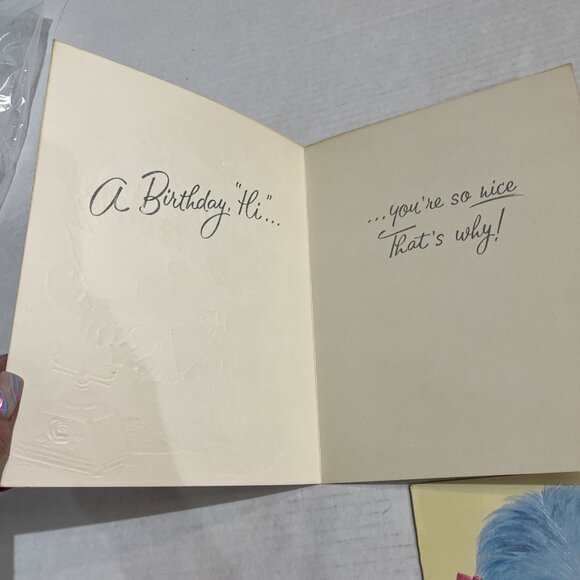 A Birthday, "Hi"...
...you're so nice
That's why!